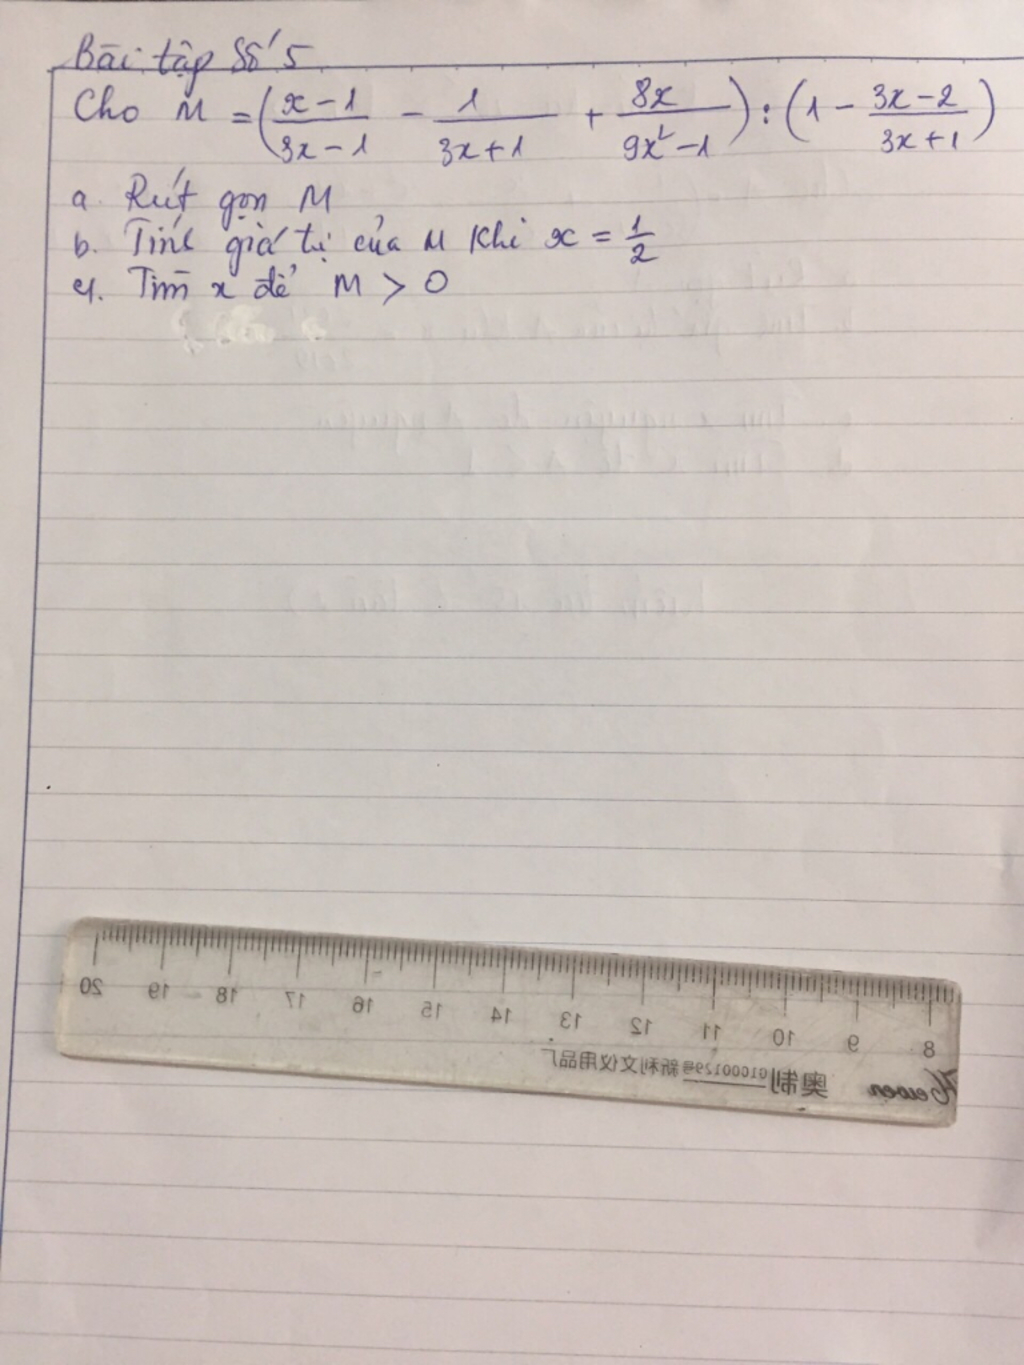 Bài tập Số 5
Cho M = (x-1/3x-1 - 1/3x+1 + 8x/9x²-1) : (1 - 3x-2/3x+1)
a. Rút gọn M
b. Tính giá tị của M khi x = 1/2
c. Tìm x để M > 0
20 19 18 17 16 15 14 13 12 11 10 9 8
奥制 G10001299号 新利文仪用品厂